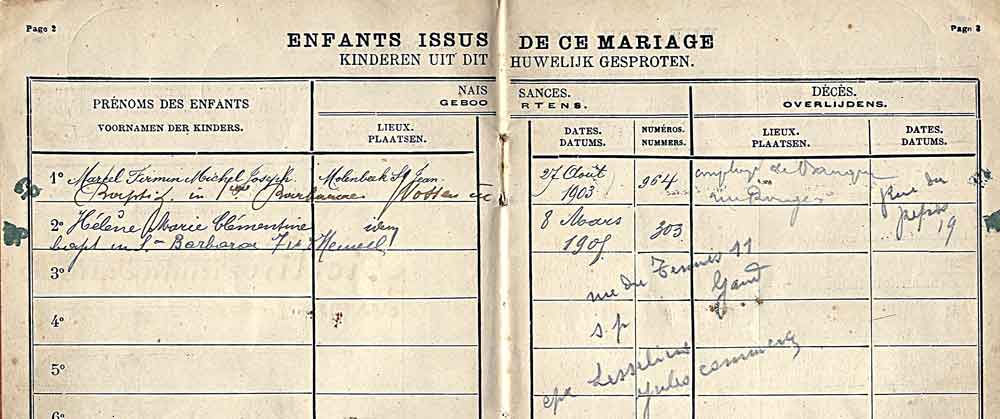 Page 2
Page 3
ENFANTS ISSUS DE CE MARIAGE
KINDEREN UIT DIT HUWELIJK GESPROTEN.
PRÉNOMS DES ENFANTS
VOORNAMEN DER KINDERS.
NAISSANCES.
GEBOORTENS.
DÉCÈS.
OVERLIJDENS.
LIEUX.
PLAATSEN.
DATES.
DATUMS.
NUMÉROS.
NUMMERS.
LIEUX.
PLAATSEN.
DATES.
DATUMS.
1° Marcel Firmin Michel Joseph
Molenbeek St Jean
27 Août
1903
964
employé de Banque
Baptis. in
rue du
19
2° Hélène Marie Clémentine
idem
8 Mars
1905
303
bapt in Sta Barbara
3°
rue du 11
Gand
4°
s.p
5°
Jules
6°